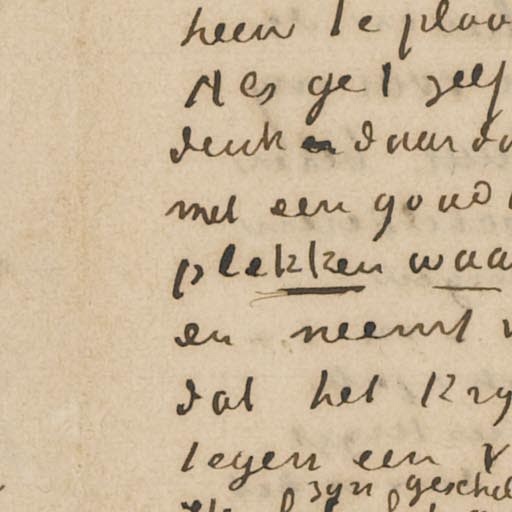 heen te plaa
Als ge t zelf
denk en daar da
met een goud
plekken waa
en neemt v
dat het kry
tegen een v
zyn geschil